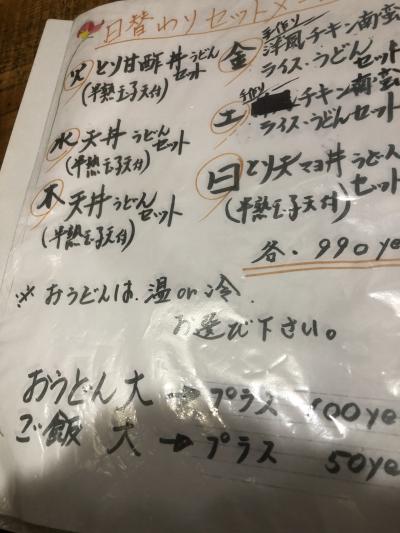 日替わりセットメニ
火 とり甘酢丼うどんセット
(半熟玉子天付)
水 天丼うどんセット
(半熟玉子天付)
木 天丼うどんセット
(半熟玉子天付)
金 手作り
洋風チキン南蛮
ライス・うどんセット
土 手作り
チキン南蛮
ライス・うどんセット
日 とり天マヨ丼うどんセット
(半熟玉子天付)
各、990ye
※おうどんは、温or冷、
お選び下さい。
おうどん 大 → プラス 100ye
ご飯 大 → プラス 50ye